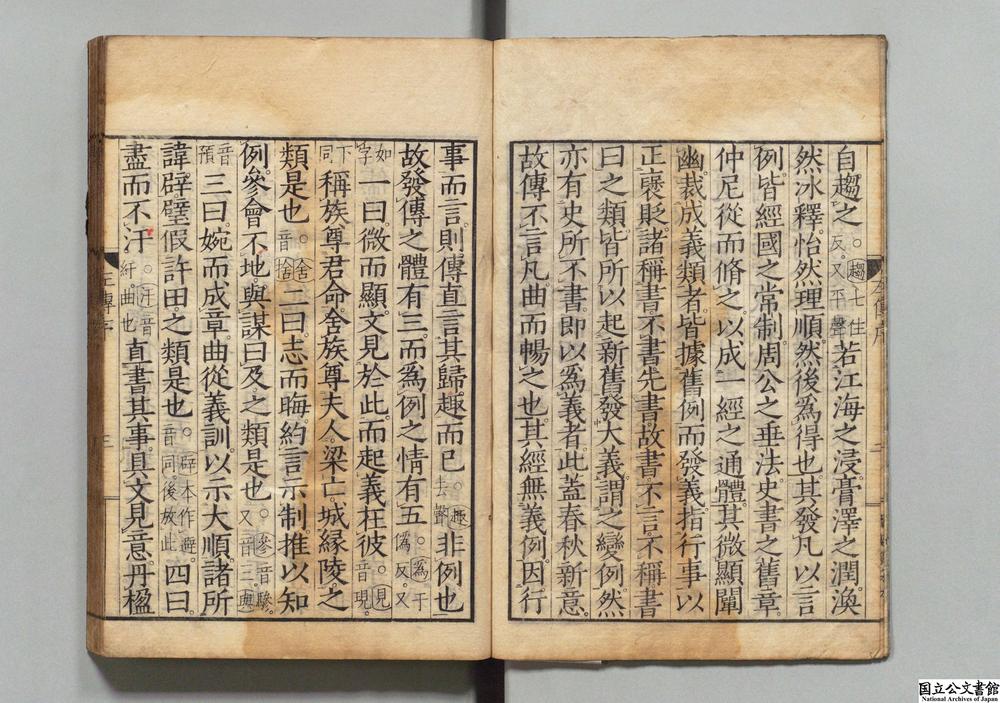 自趨之○趨七住反又平聲若江海之浸膏澤之潤渙
然冰釋怡然理順然後爲得也其發凡以言
例皆經國之常制周公之垂法史書之舊章
仲尼從而脩之以成一經之通體其微顯闡
幽裁成義類者皆據舊例而發義指行事以
正襃貶諸稱書不書先書故書不言不稱書
曰之類皆所以起新舊發大義謂之變例然
亦有史所不書即以爲義者此蓋春秋新意
故傳不言凡曲而暢之也其經無義例因行
左傳序
二
事而言則傳直言其歸趣而已○趣去聲非例也
故發傳之體有三而爲例之情有五○爲于僞反又
如字一曰微而顯文見於此而起義在彼○見音現
下同稱族尊君命舍族尊夫人梁亡城緣陵之
類是也○舍音捨二曰志而晦約言示制推以知
例參會不地與謀曰及之類是也○參音驂又音三與
音預三曰婉而成章曲從義訓以示大順諸所
諱辟璧假許田之類是也○辟本作避音同後放此四曰
盡而不汙○汙音紆曲也直書其事具文見意丹楹
左傳序
三
国立公文書館
National Archives of Japan